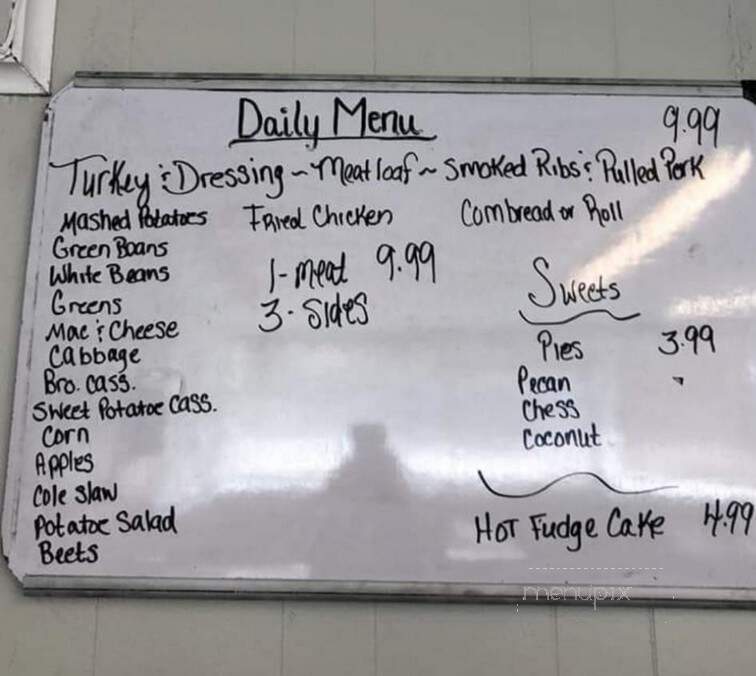 Daily Menu 9.99
Turkey & Dressing ~ Meatloaf ~ Smoked Ribs & Pulled Pork
Mashed Potatoes Fried Chicken Cornbread or Roll
Green Beans
White Beans 1 - meat 9.99
Greens 3 - Sides
Mac & Cheese
Cabbage
Bro. Cass.
Sweet Potatoe Cass.
Corn
Apples
Cole Slaw
Potatoe Salad
Beets
Sweets
Pies 3.99
Pecan "
Chess
Coconut
Hot Fudge Cake 4.99
menupix